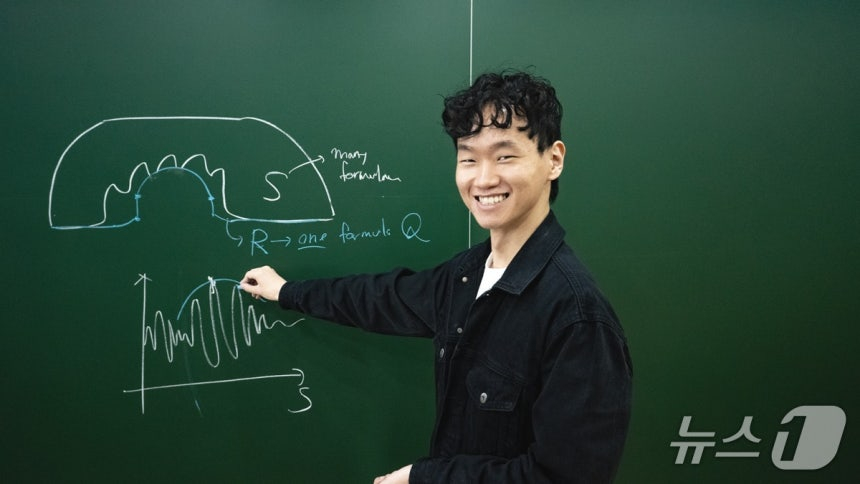 many
formulae
S
R → one formula Q
S
뉴스1